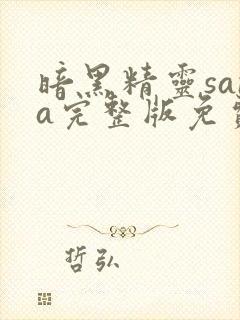 暗黑精靈sa
a完整版免
哲弘